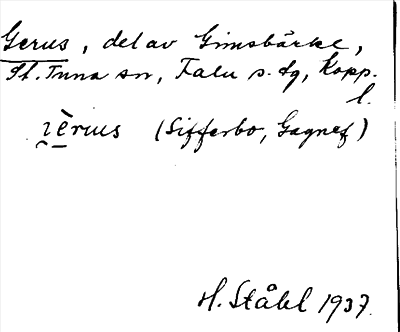 Gerus, del av Gimsbärke,
St. Tuna sn, Falu s. dg, Kopp.
l.
ı̯èrus (Sifferbo, Gagnef)
H. Ståhl 1937.